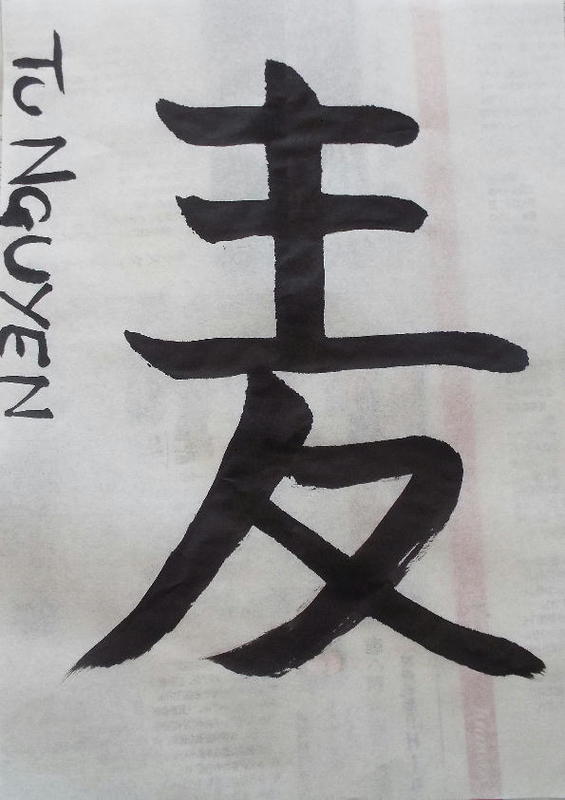 麦
TU NGUYEN